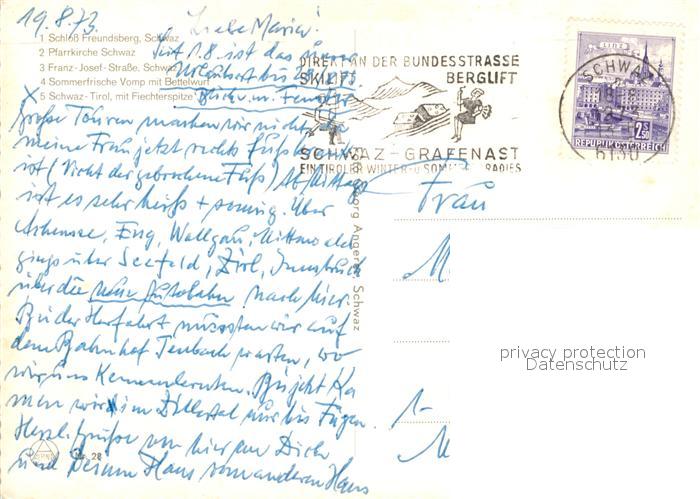 19.8.73. Liebe Maria!
1 Schloß Freundsberg, Schwaz
2 Pfarrkirche Schwaz
3 Franz-Josef-Straße, Schwaz
4 Sommerfrische Vomp mit Bettelwurf
5 Schwaz-Tirol, mit Fiechterspitze
Seit 1.8. ist das unser
Urlaubsort bis
Blick v. Fenster
Große Touren machen wir nicht, da
meine Frau jetzt rechts
ist (Nicht der gebrochene Fuß) Ab Mittags
ist es sehr heiß + sonnig. Über
Achensee, Eng, Wallgau, Mittenwald
gings über Seefeld, Zirl, Innsbruck
über die neue Autobahn nach hier.
Bei der Herfahrt mussten wir auf
dem Bahnhof Jenbach warten, wo
wir uns kennenlernten. Bis jetzt ka
men wir im Zillertal nur bis Fügen.
Herzl. Grüße von hier an Dich
und Deinem Haus vom anderen Haus
DIREKT AN DER BUNDESSTRASSE
BERGLIFT
SCHWAZ-GRAFENAST
EIN TIROLER WINTER-U SOMMERPARADIES
LINZ
2.50
REPUBLIK ÖSTERREICH
SCHWAZ
6130
Georg Angerer, Schwaz
Frau
M
privacy protection
Datenschutz
1-
M
28